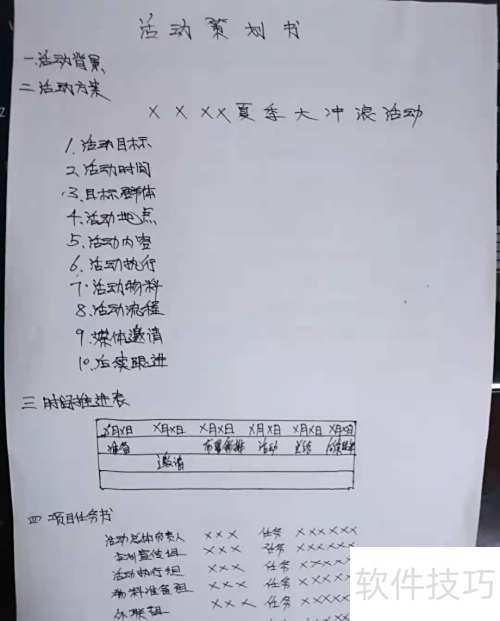 活动策划书
一.活动背景
二.活动方案
××××夏季大冲浪活动
1.活动目标
2.活动时间
3.目标群体
4.活动地点
5.活动内容
6.活动执行
7.活动物料
8.活动流程
9.媒体邀请
10.后续跟进
三 时间推进表
×月×日 ×月×日 ×月×日 ×月×日 ×月×日 ×月×日
准备 布置彩排 活动 总结
邀请
四 项目任务书
活动总体负责人 ××× 任务 ××××××
宣传组 ××× 任务 ××××××
活动执行组 ××× 任务 ××××
物料准备组 ××× 任务 ×××
外联组 ××× 任务 ×××
软件技巧